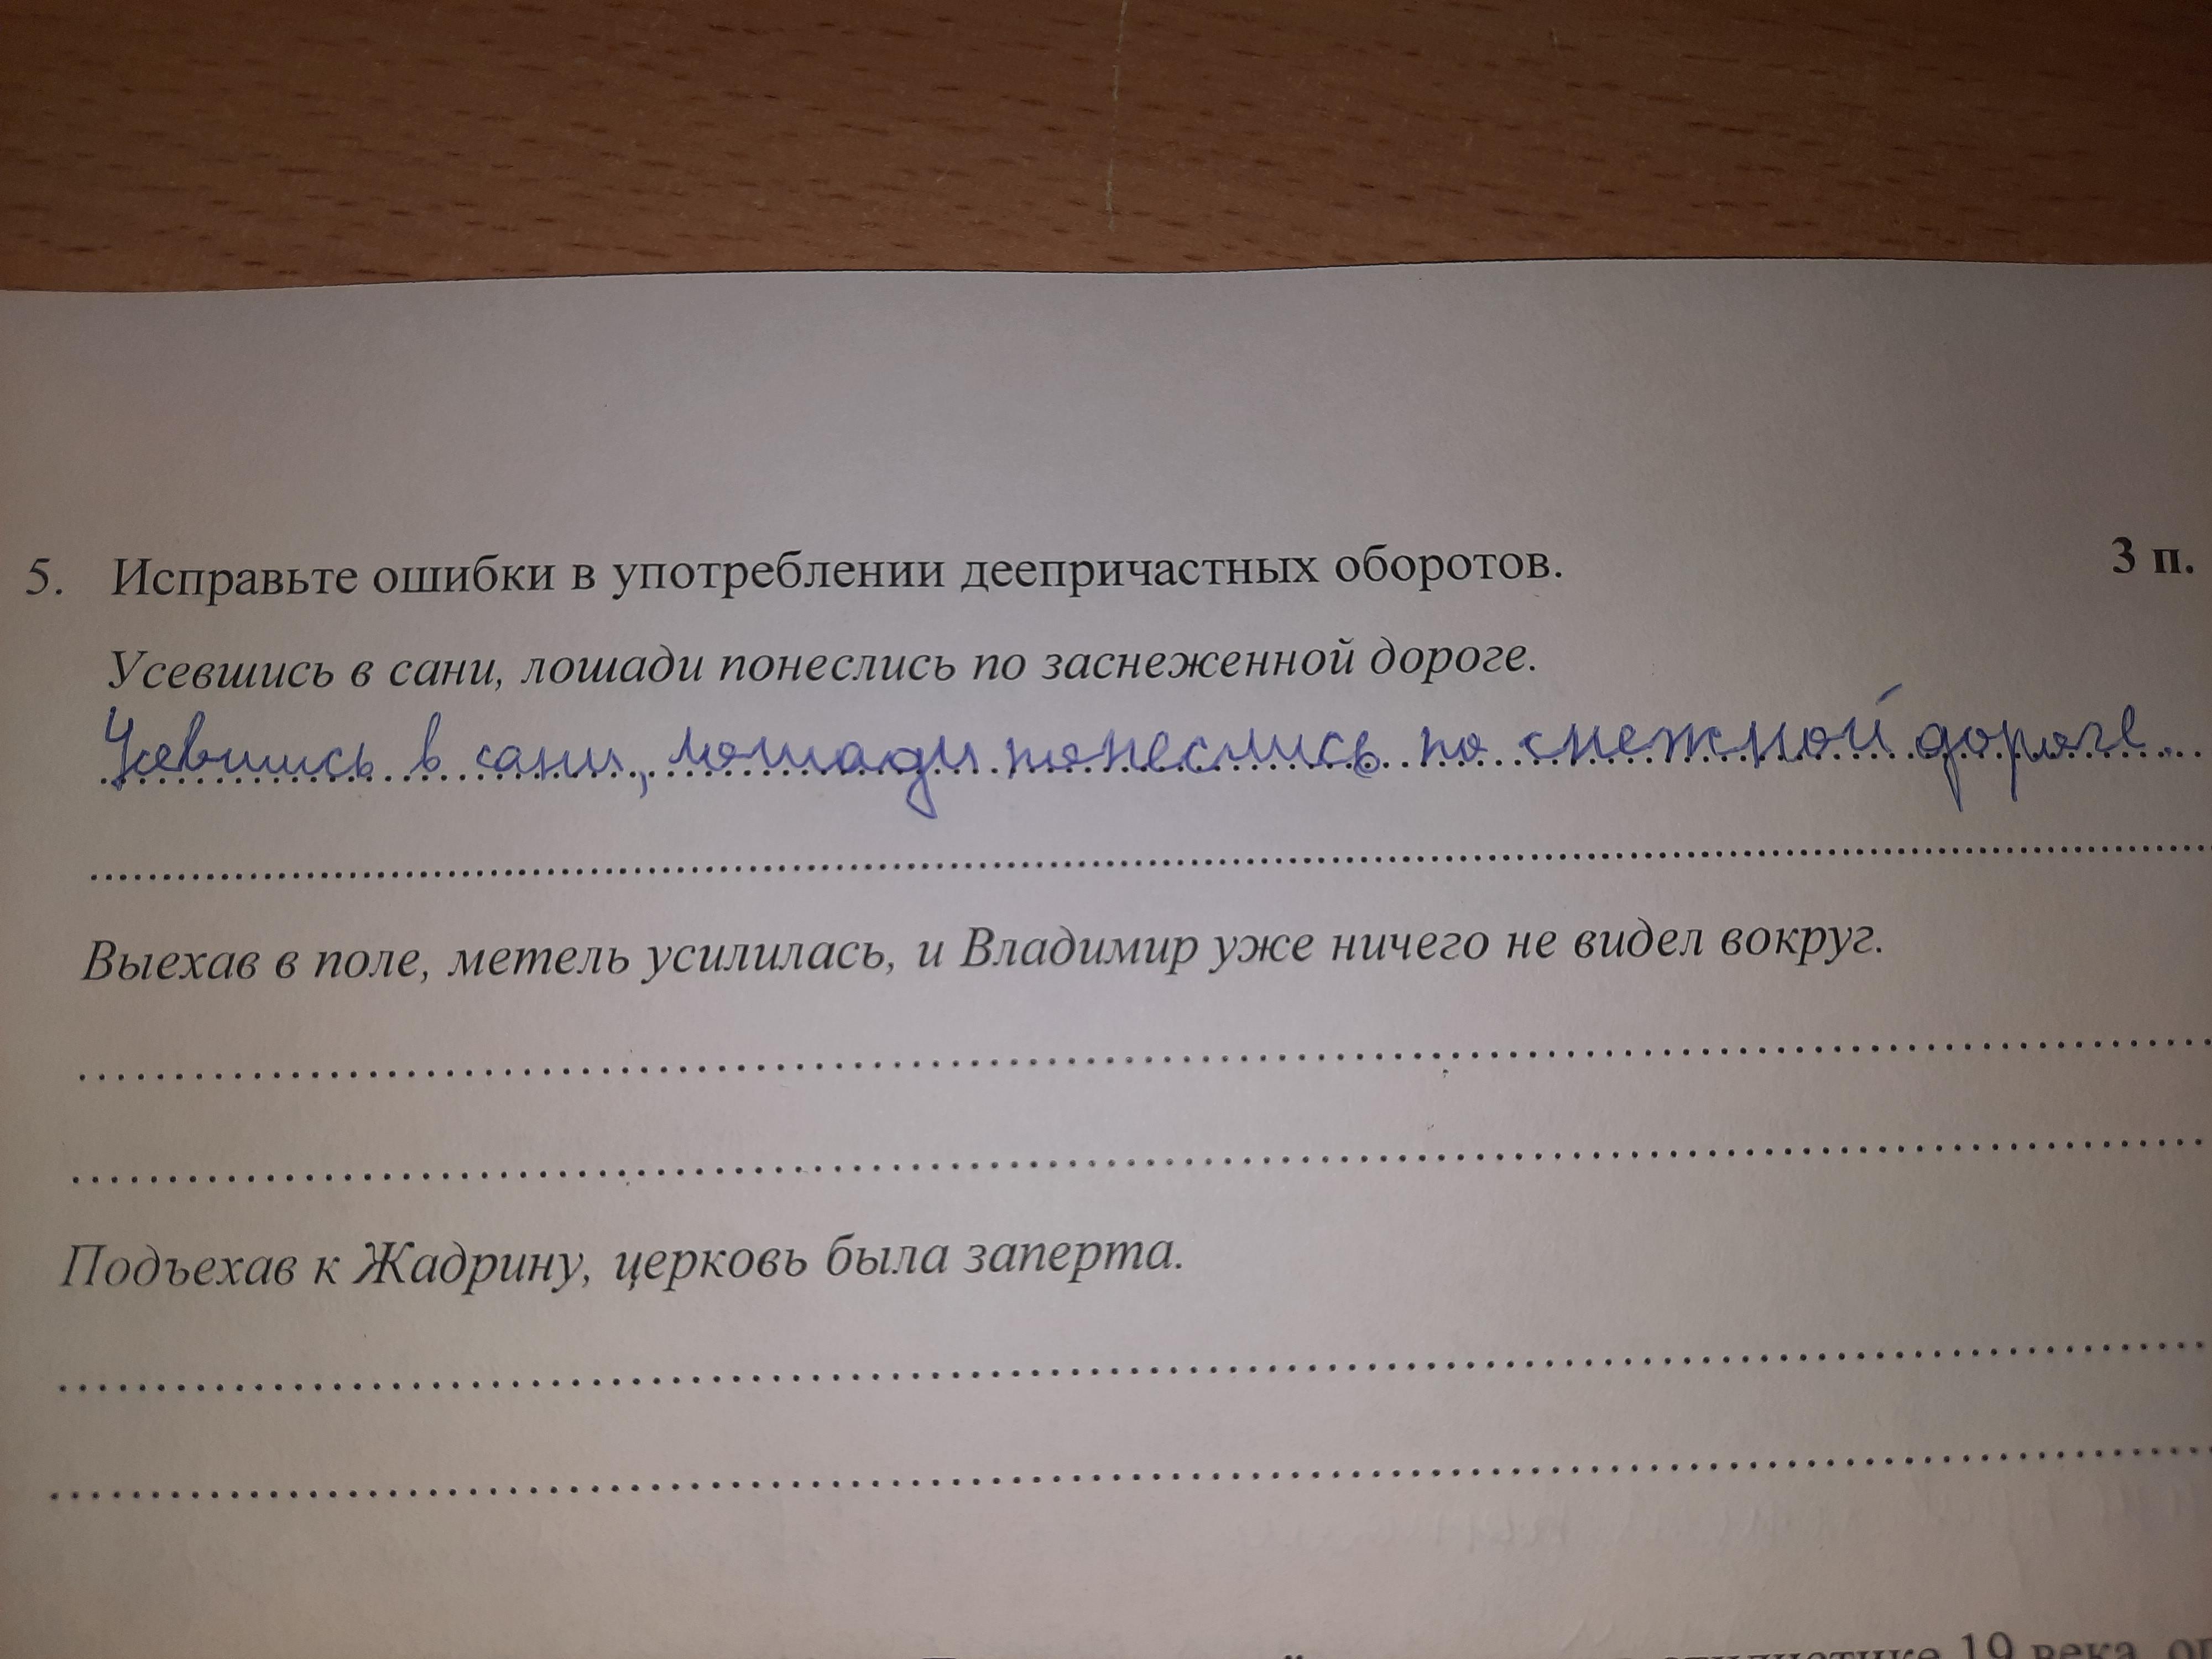 5. Исправьте ошибки в употреблении деепричастных оборотов. 3 п.
Усевшись в сани, лошади понеслись по заснеженной дороге.
Усевшись в сани, лошади понеслись по снежной дороге.
Выехав в поле, метель усилилась, и Владимир уже ничего не видел вокруг.
Подъехав к Жадрину, церковь была заперта.
19 века